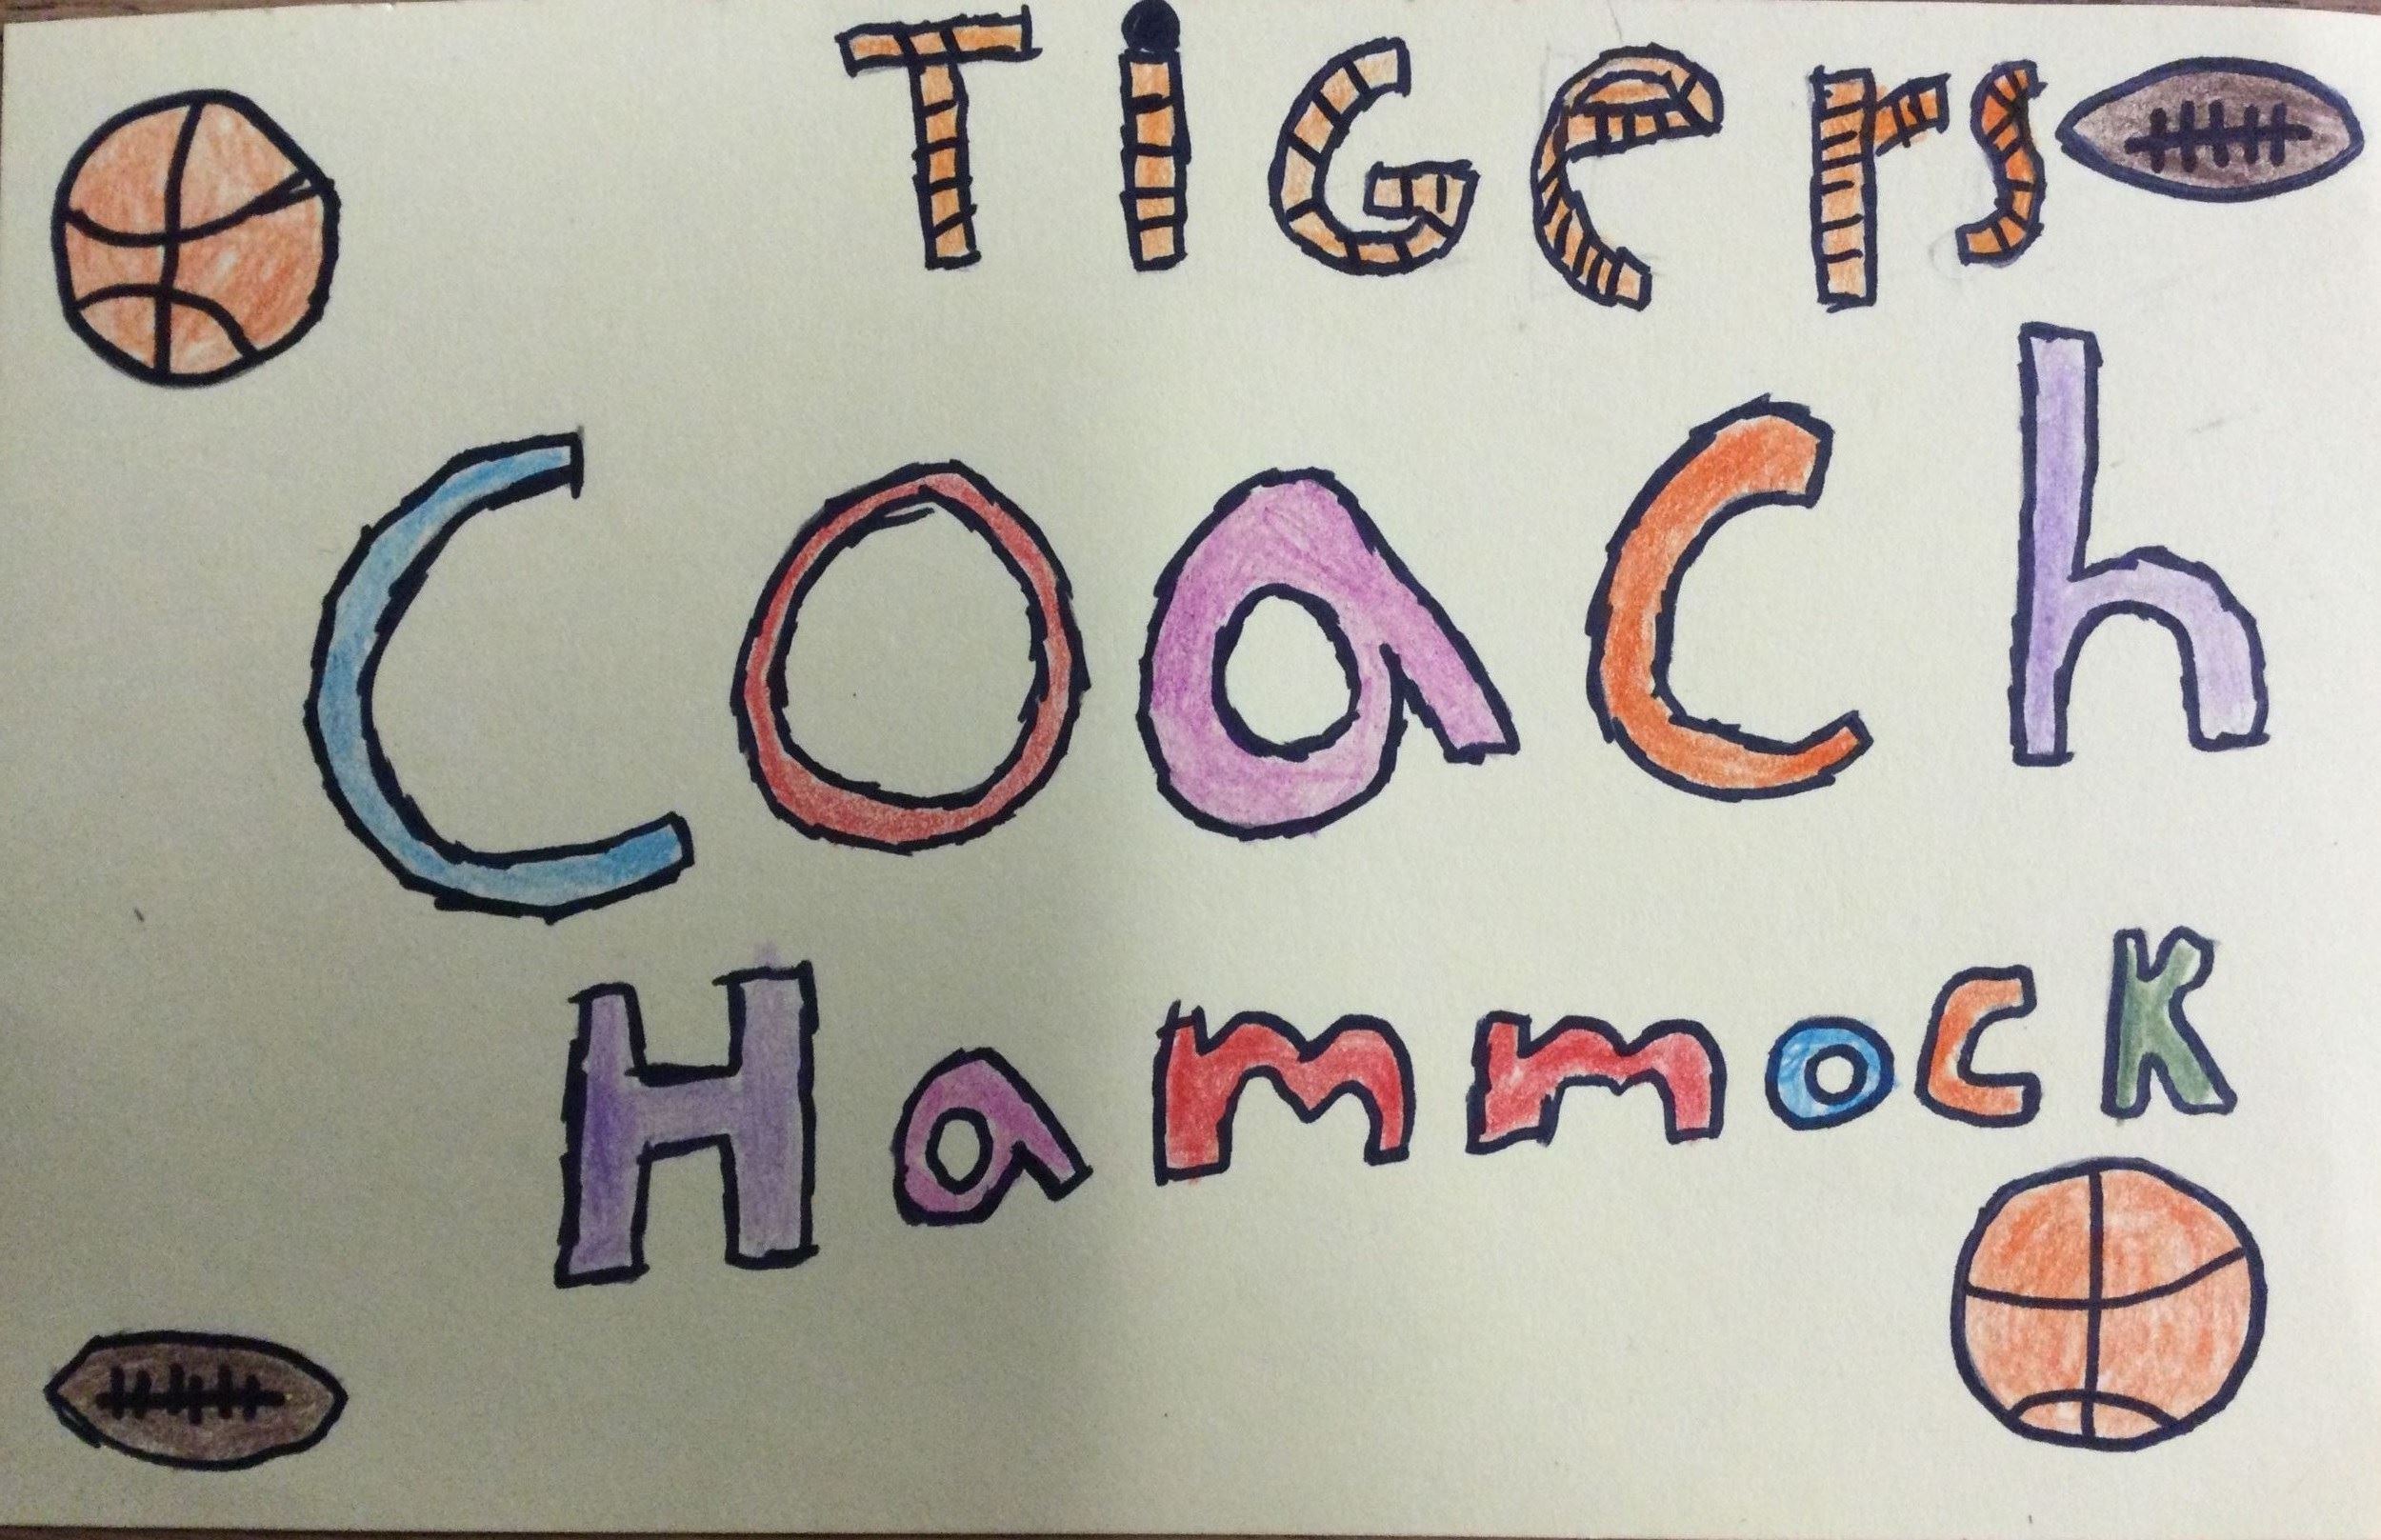 TiGers
Coach
Hammock